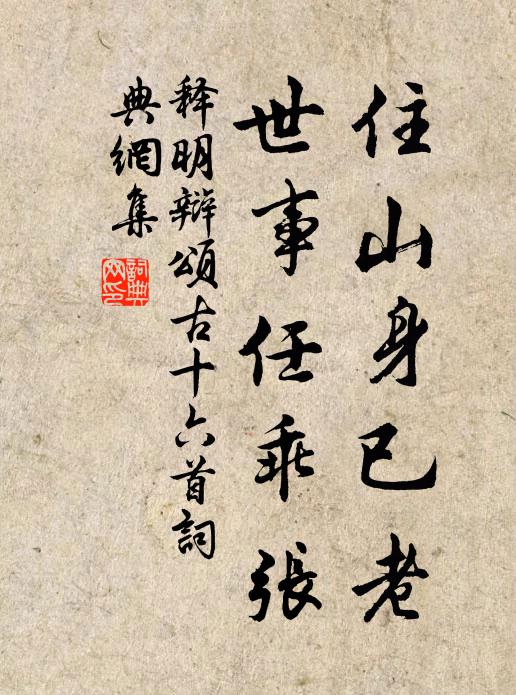 住山身已老
世事任乖張
释明辯頌古十六首詞
典網集
詞典
网印